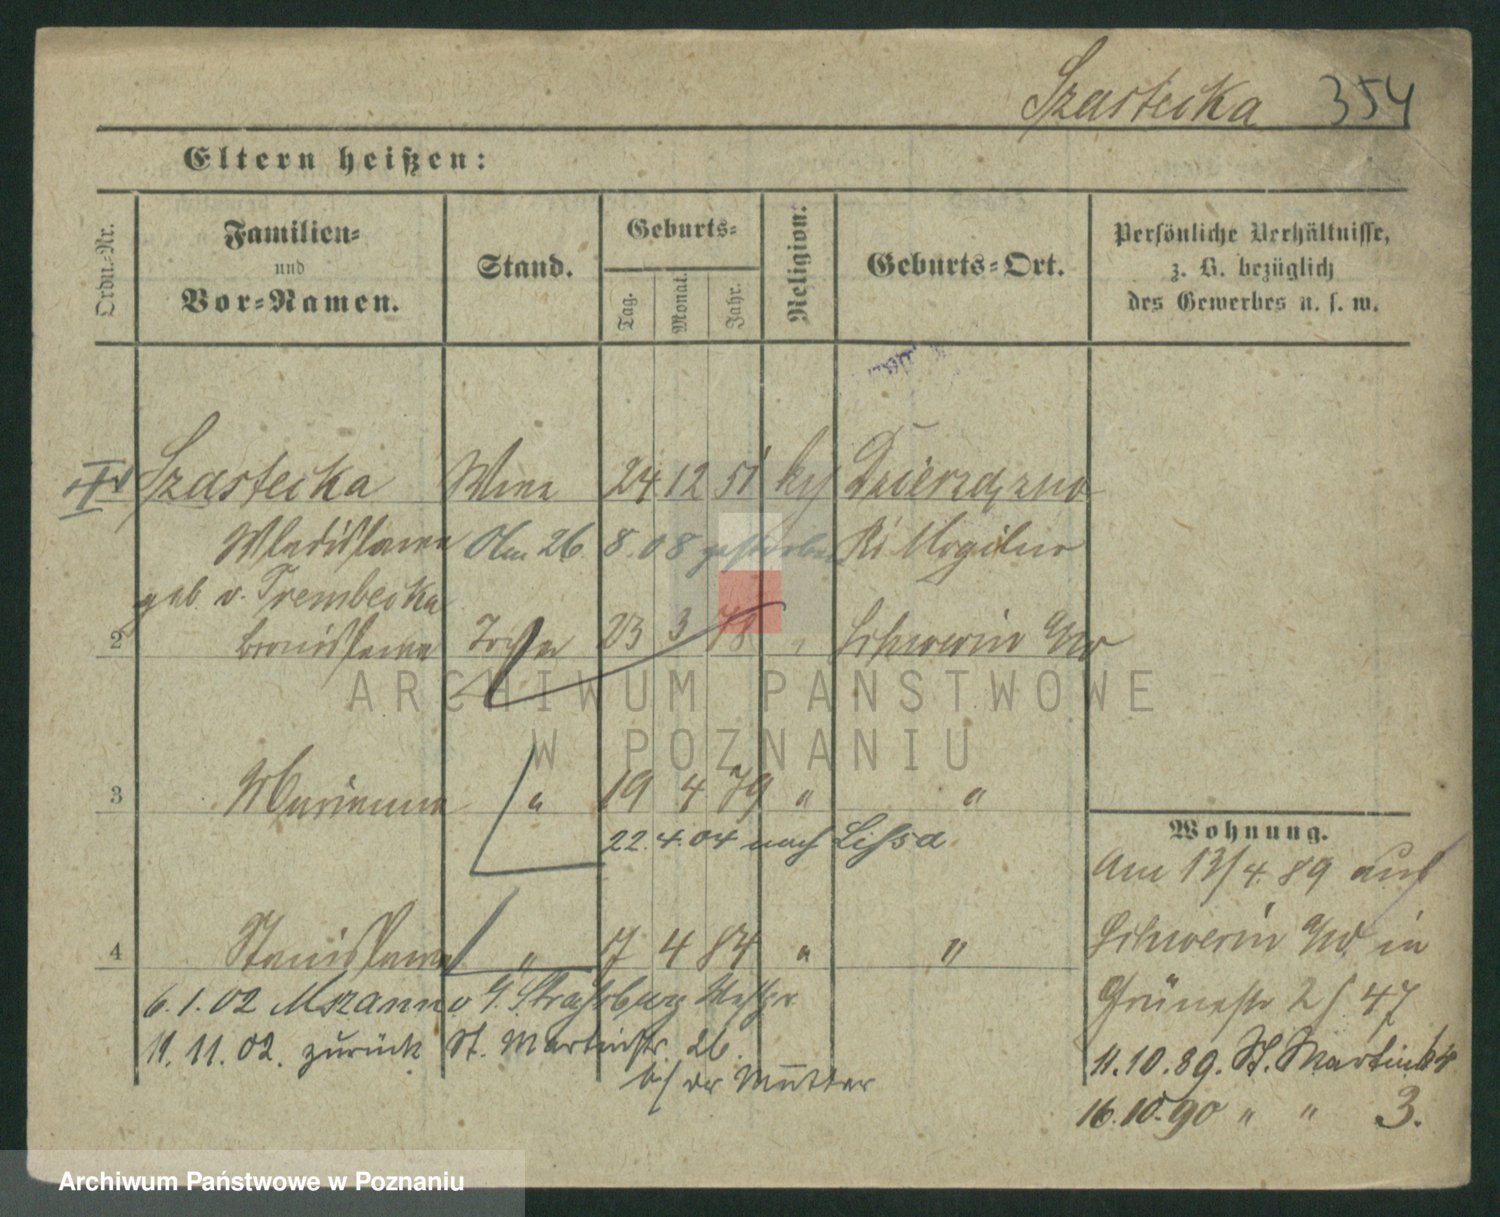 Szastecka 354
Eltern heißen:
Ordn.-Nr.
Familien-
und
Vor-Namen.
Stand.
Geburts-
Tag.
Monat.
Jahr.
Religion:
Geburts-Ort.
Persönliche Verhältnisse,
z. B. bezüglich
des Gewerbes u. s. w.
Szastecka Wwe 24 12 51 Dzierzązno
Wladislawa Am 26. 8. 08 gestorben Kr. Mogilno
geb. v. Trembecka
2 Bronislawa 23 3 78 " Schwerin a/W
3 Marianna " 19 4 79 " "
22. 4. 04 nach Lissa
4 Stanislawa " 7 4 84 " "
6. 1. 02 Mszanno Strasburg Westpr
11. 11. 02. zurück St. Martinstr. 26.
bei der Mutter
Wohnung.
Am 13/4. 89 aus
Schwerin a/W. in
Grünestr 2 47
11. 10. 89. St. Martin
16. 10. 90 " " 3.
ARCHIWUM PAŃSTWOWE
W POZNANIU
Archiwum Państwowe w Poznaniu